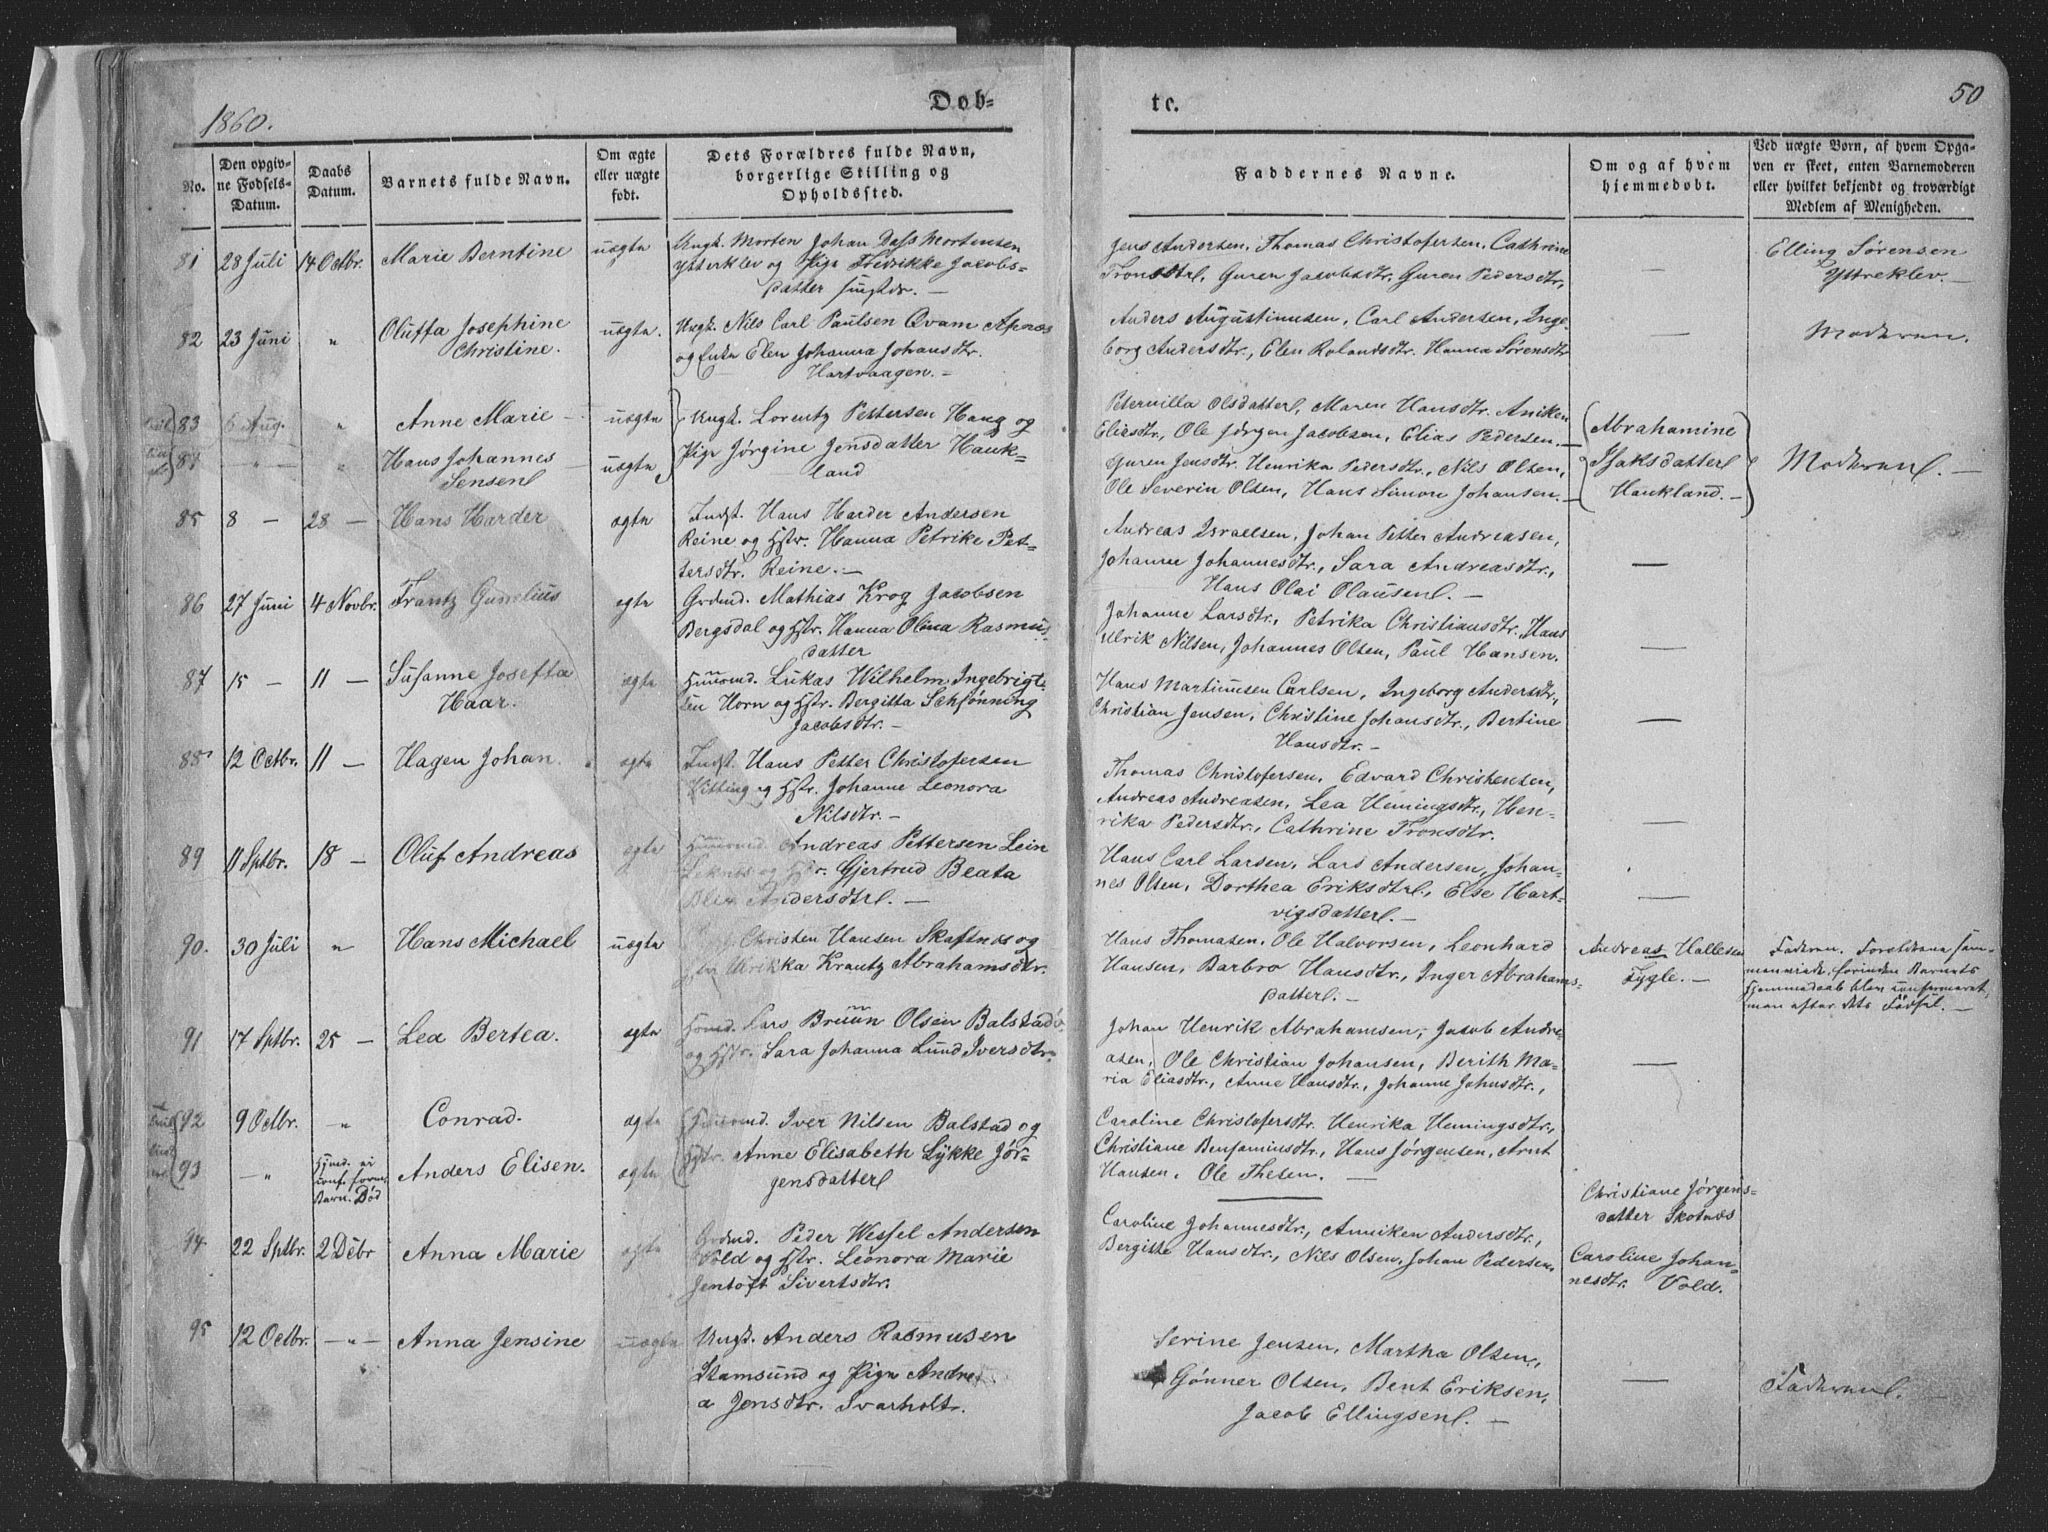 1860.
Døb-
te.
50
No.
Den opgiv-
ne Fødsels-
Datum.
Daabs
Datum.
Barnets fulde Navn.
Om ægte
eller uægte
født.
Dets Forældres fulde Navn,
borgerlige Stilling og
Opholdssted.
Faddernes Navne.
Om og af hvem
hjemmedøbt.
Ved uægte Børn, af hvem Opga-
ven er skeet, enten Barnemoderen
eller hvilket bekjendt og troværdigt
Medlem af Menigheden.
81 28 Juli 14 Octbr. Marie Berntine uægte
Ungk. Morten Johan Dass Mortensen
Ytterklev og Pige Fredrikke Jacobs-
datter
Jens Andersen, Thomas Christofersen, Cathrine
Tronsdtr, Guren Jacobsdtr, Guren Pedersdtr,
—
Elling Sørensen
Yttreklev. —
82 23 Juni " Oluffa Josephine
Christine.
uægte.
Ungk. Nils Carl Paulsen Qvam
og Enke Elen Johanna Johansdtr.
Hartvaagen. —
Anders Augustinusen, Carl Andersen, Inge-
borg Andersdtr., Elen Rolandsdtr. Hanna Sørensdtr
—
Moderen.
83 6 Aug. " Anne Marie — uægte
84 — " — " Hans Johannes
Jensen
uægte
Ungk. Lorentz Pettersen Haug og
Pige Jørgine Jensdatter Hauk-
land
Petervilla Olsdatter, Maren Hansdtr. Aniken
Eliasdtr., Ole Jørgen Jacobsen, Elias Pedersen. —
Guren Jensdtr, Henrika Pedersdtr., Nils Olsen,
Ole Severin Olsen, Hans Simon Johansen. —
Abrahamine
Isaksdatter
Haukland. —
Moderen. —
85 8 — 28 — Hans Harder ægte
Indst. Hans Harder Andersen
Reine og Hstr. Hanna Petrike Pet-
tersdtr. Reine. —
Andreas Israelsen, Johan Petter Andreasen,
Johanne Johannesdtr., Sara Andreasdtr.,
Hans Olai Olausen. —
—
86 27 Juni 4 Novbr. Frantz Gunelius ægte
Grdmd. Mathias Krog Jacobsen
Bergsdal og Hstr. Hanna Olina Rasmus-
datter
Johanne Larsdtr., Petrika Christiansdtr., Hans
Ulrik Nilsen, Johannes Olsen, Paul Hansen.
87 15 — 11 — Susanne Josefta
Haar.
ægte
Huusmd. Lukas Wilhelm Ingebrigt-
sen Horn og Hstr. Bergitta Schjønning
Jacobsdtr. —
Hans Martinusen Carlsen, Ingeborg Andersdtr,
Christian Jensen, Christine Johansdtr., Bertine
Hansdtr. —
—
88 12 Octbr. 11 — Hagen Johan. ægte
Indst. Hans Petter Christofersen
og Hstr. Johanne Leonora
Nilsdtr. —
Thomas Christofersen, Edvard Christensen,
Andreas Andreasen, Lea Hemingsdtr., Hen-
rika Pedersdtr., Cathrine Tronsdtr.
89 11 Sptbr. 18 — Oluf Andreas ægte
Huusmd. Andreas Pettersen Lein
Leknes og Hstr. Gjertrud Beata
Blix Andersdtr. —
Hans Carl Larsen, Lars Andersen, Johan-
nes Olsen, Dorthea Eriksdtr., Else Hart-
vigsdatter. —
—
90. 30 Juli " Hans Michael uægte
Christen Hansen Skaftnes og
Ulrikka Krantz Abrahamsdtr.
Hans Thomasen, Ole Halvorsen, Leonhard
Hansen, Barbro Hansdtr., Inger Abrahams-
datter. —
Andreas Hallesen
Fygle. —
Faderen. Forældrene sam-
menviede, forinden Barnets
Hjemmedaab blev confirmeret,
men efter dets Fødsel. —
91 17 Sptbr. 25 — Lea Bertea. ægte
Hsmd. Lars Bruun Olsen Balstad
og Hstr. Sara Johanna Lund Iversdtr.
Johan Henrik Abrahamsen, Jacob Andre-
asen, Ole Christian Johansen, Berith Ma-
ria Eliasdtr., Anne Hansdtr., Johanne Johnsdtr.,
—
92 9 Octbr. " Conrad. ægte
93 — " Hjmd. ei
conf. forin.
Barn. Død
Anders Elisen. ægte
Huusmd. Iver Nilsen Balstad og
Hstr. Anne Elisabeth Lykke Jør-
gensdatter
Caroline Christofersdtr. Henrika Hemingsdtr.,
Christiane Benjaminsdtr., Hans Jørgensen, Arnt
Hansen, Ole Thesen. —
Christiane Jørgens-
datter Skotnæs
94. 22 Sptbr. 2 Debr Anna Marie ægte
Grdmd. Peder Wessel Andersen
Vold og Hstr. Leonora Marie
Jentoft Sivertsdtr.
Caroline Johannesdtr., Anniken Andersdtr.,
Bergitte Hansdtr., Nils Olsen, Johan Pedersen,
Caroline Johan-
nesdtr. Vold.
95 12 Octbr. — " — Anna Jensine uægte
Ungk. Anders Rasmusen
Stamsund og Pige Andre-
a Jensdtr. Svarholt.
Serine Jensen, Martha Olsen,
Gønner Olsen, Bent Eriksen,
Jacob Ellingsen. —
—
Faderen. —